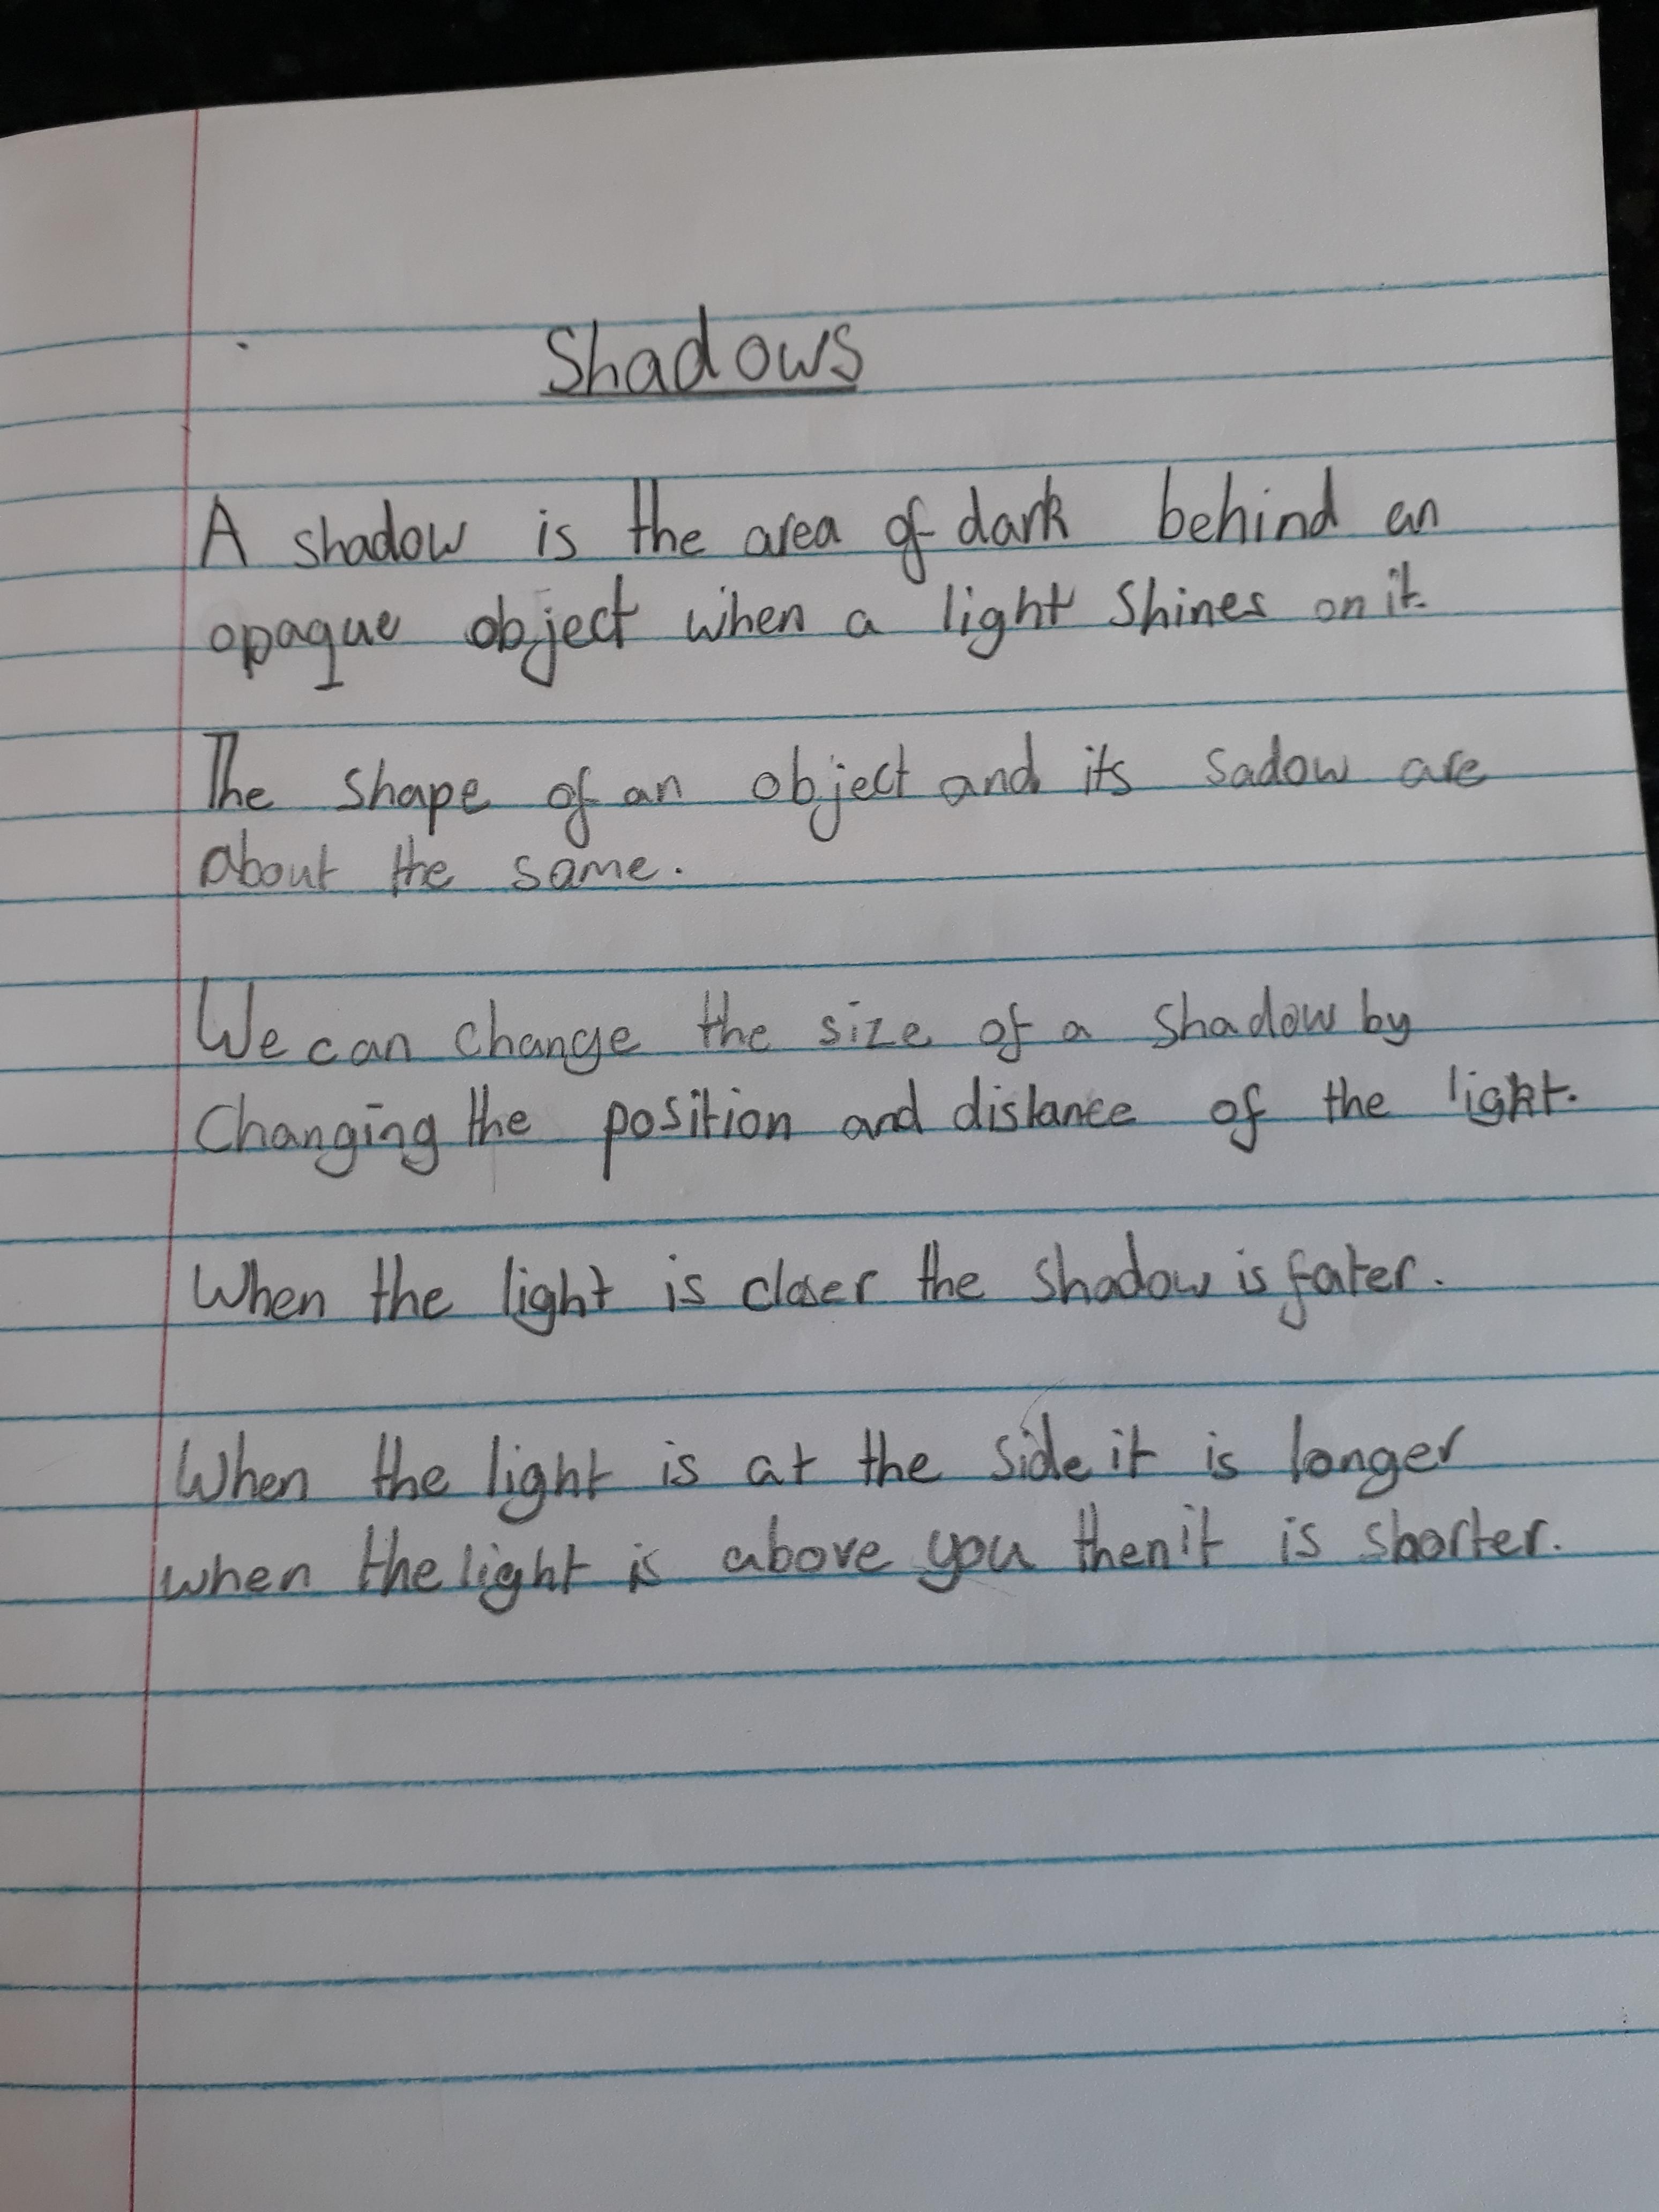 Shadows
A shadow is the area of dark behind an
opaque object when a light shines on it.
The shape of an object and its sadow are
about the same.
We can change the size of a shadow by
Changing the position and distance of the light.
When the light is closer the shadow is fater.
When the light is at the side it is longer
when the light is above you then it is shorter.